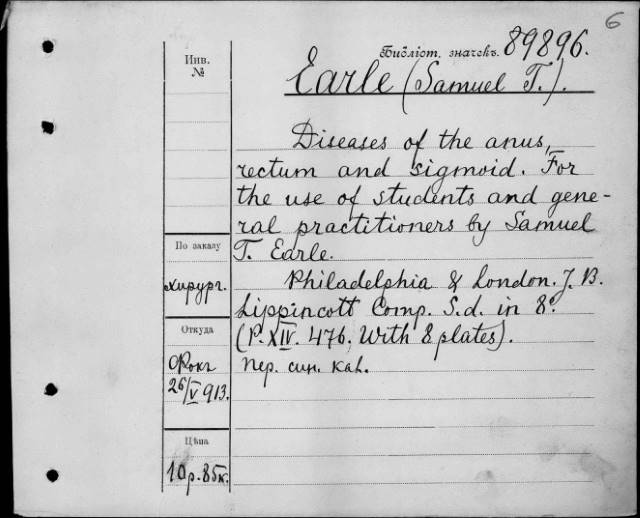 6
Библіот. значекъ. 89896.
Инв.
№
Earle (Samuel T.).
Diseases of the anus,
rectum and sigmoid. For
the use of students and gene-
ral practitioners by Samuel
T. Earle.
По заказу
хирург.
Philadelphia & London. J. B.
Lippincott Comp. S.d. in 8º.
(P. XIV. 476, With 8 plates).
Откуда
Фокг
26/V 913.
пер. син. кал.
Цѣна
10р. 85к.